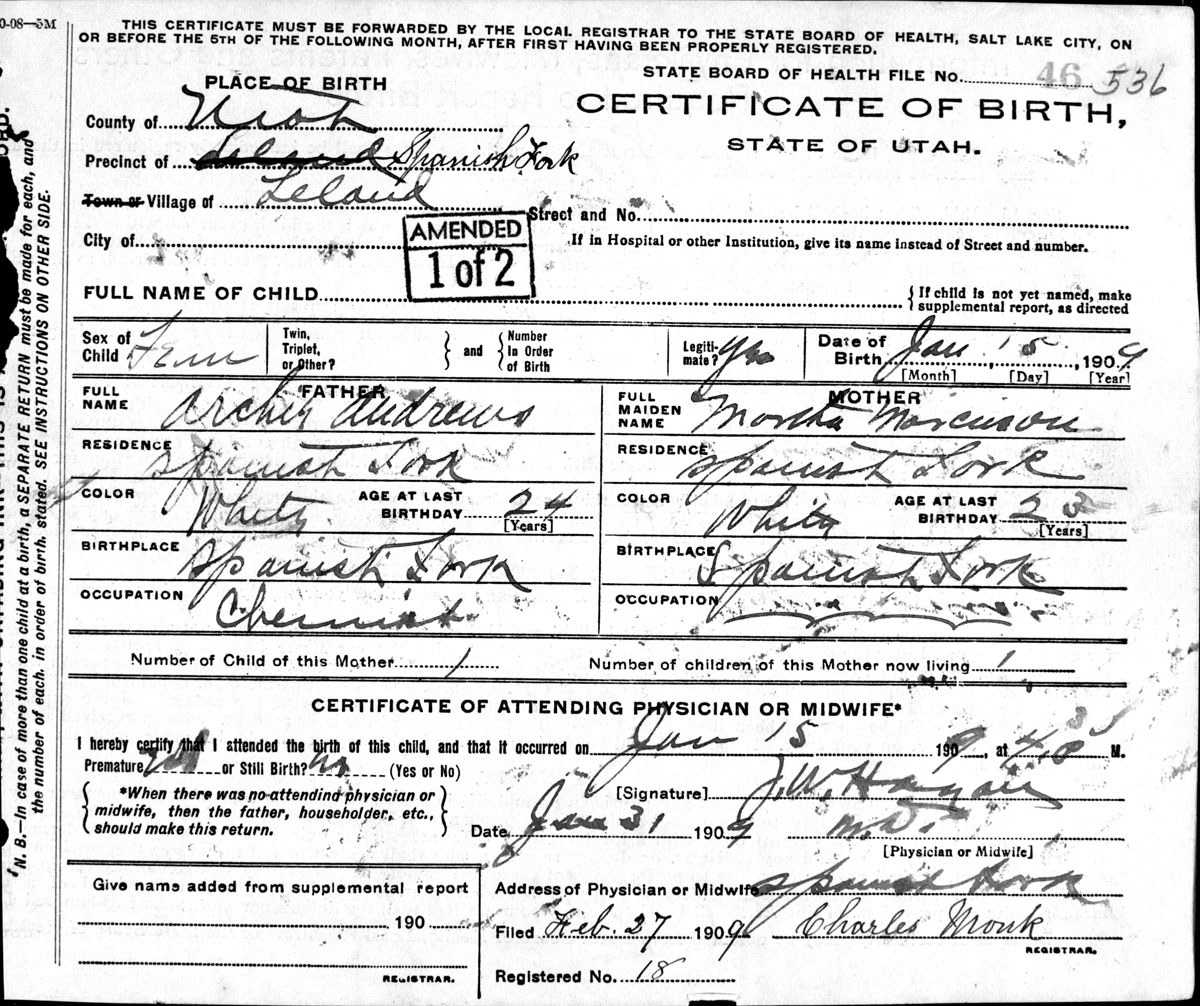 0-08—5M
THIS CERTIFICATE MUST BE FORWARDED BY THE LOCAL REGISTRAR TO THE STATE BOARD OF HEALTH, SALT LAKE CITY, ON
OR BEFORE THE 5TH OF THE FOLLOWING MONTH, AFTER FIRST HAVING BEEN PROPERLY REGISTERED.
STATE BOARD OF HEALTH FILE NO. 46 536
PLACE OF BIRTH
CERTIFICATE OF BIRTH,
STATE OF UTAH.
County of Utah
Precinct of Leland Spanish Fork
Town or Village of Leland
Street and No.
City of
If in Hospital or other Institution, give its name instead of Street and number.
AMENDED
1 of 2
FULL NAME OF CHILD
{ If child is not yet named, make
supplemental report, as directed
Sex of Child Fem
Twin, Triplet, or Other? } and { Number In Order of Birth
Legiti-mate? Yes
Date of Birth Jan 15, 1909
[Month] [Day] [Year]
FATHER
FULL NAME Archey Andrews
MOTHER
FULL MAIDEN NAME Martha Marcuson
RESIDENCE Spanish Fork
RESIDENCE Spanish Fork
COLOR White AGE AT LAST BIRTHDAY 24 [Years]
COLOR White AGE AT LAST BIRTHDAY 23 [Years]
BIRTHPLACE Spanish Fork
BIRTHPLACE Spanish Fork
OCCUPATION Chemist
OCCUPATION
Number of Child of this Mother 1
Number of children of this Mother now living 1
CERTIFICATE OF ATTENDING PHYSICIAN OR MIDWIFE*
I hereby certify that I attended the birth of this child, and that it occurred on Jan 15 1909, at 4.30 M.
Premature or Still Birth? No (Yes or No)
{ *When there was no attendind physician or
midwife, then the father, householder, etc.,
should make this return. }
[Signature] J. W. Hagan
Date Jan 31 1909 M.D.
[Physician or Midwife]
Give name added from supplemental report
Address of Physician or Midwife Spanish Fork
190
Filed Feb. 27 1909 Charles Monk
REGISTRAR.
REGISTRAR.
Registered No. 18
N. B.—In case of more than one child at a birth, a SEPARATE RETURN must be made for each, and
the number of each, in order of birth, stated. SEE INSTRUCTIONS ON OTHER SIDE.